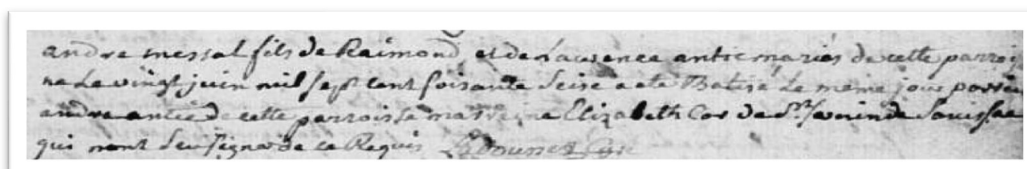 andre messal fils de Raimond et de Laurence antic mariés de cette parroi
ne Le vingt juin mil sept cent soisante seise a ete Batisé Le même jour parrein
andre antic de cette parroisse marreine Elizabeth Cor de St
qui nont seu signer de ce Requis